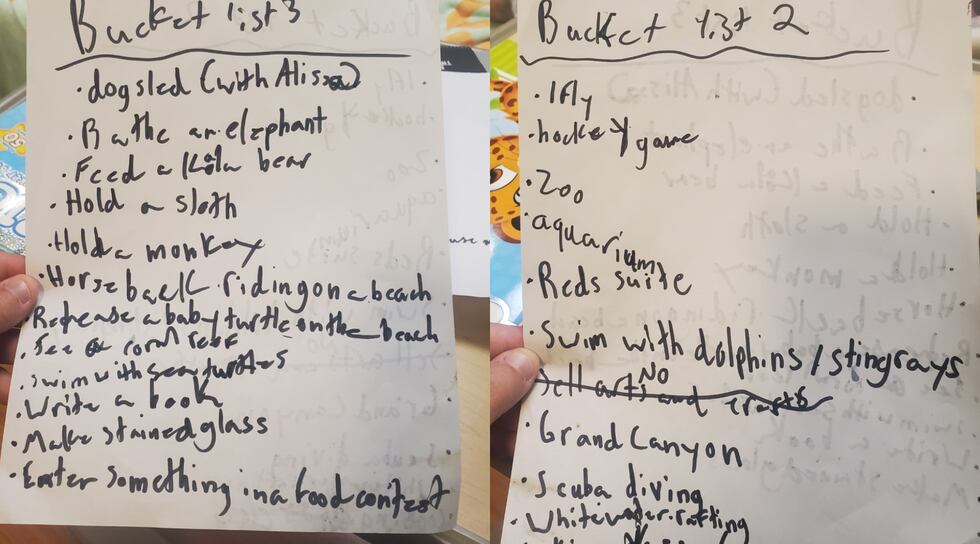 Bucket list 3
• dogsled (with Alissa)
• Bathe an elephant
• Feed a Kola bear
• Hold a sloth
• Hold a monkey
• Horse back riding on a beach
• Release a baby turtle on the beach
• See a coral reef
• Swim with sea turtles
• Write a book
• Make stained glass
• Enter something in a food contest
Bucket list 2
• Ifly
• hockey game
• Zoo
• aquarium
• Reds suite
• Swim with dolphins / stingrays
NO
Sell arts and crafts
• Grand Canyon
• Scuba diving
• Whitewater rafting